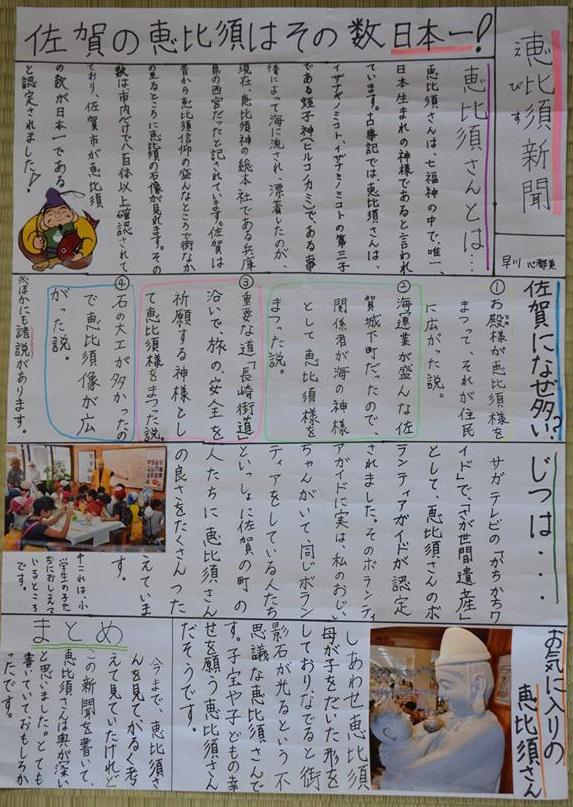 佐賀の恵比須はその数日本一!
恵比須新聞
えびす
早川
恵比須さんとは…
恵比須さんは、七福神の中で、唯一、
日本生まれの神様であると言われ
ています。古事記では、恵比須さんは
イザナギノミコト、イザナミノミコトの第三子
である蛭子神(ヒルコノカミ)で、ある事
後によって海に流され、漂着したのが、
現在、恵比須神の総本社である兵庫
県の西宮だったと記されています。佐賀は
昔から恵比須信仰の盛んなところで街なか
の至るところに恵比須の石像が見れます。その
数は市内だけで八百体以上確認されて
おり、佐賀市が恵比須
の数が日本一である
と認定されました!
佐賀になぜ多い?
①お殿様が恵比須様を
まつって、それが住民
に広がった説。
②海運業が盛んな佐
賀城下町だったので、
関係者が海の神様
として恵比須様を
まつった説。
③重要な道「長崎街道」
沿いで、旅の安全を
祈願する神様とし
て恵比須様をまつった説。
④石の大工が多かったの
で恵比須像が広
がった説。
※ほかにも諸説があります。
じつは・・・
サガテレビの「かちかちワ
イド」で、「さが世間遺産」
として、恵比須さんのボ
ランティアガイドが認定
されました。そのボランティ
アガイドに実は、私のおじい
ちゃんがいて、同じボラン
ティアをしている人たち
といっしょに佐賀の町の
人たちに恵比須さん
の良さをたくさんつた
えていま
す。
これは、小
学生の子た
ちにおしえて
いるところ
です。
お気に入りの
恵比須さん
しあわせ恵比須
母が子をだいた形を
しており、なでると街
影石が光るという不
思議な恵比須さんで
す。子宝や子どもの幸
せを願う恵比須さん
だそうです。
まとめ
今まで、恵比須さ
んを見て、かるく考
えて見ていたけれど
この新聞を書いて、
恵比須さんは奥が深い
と思いました。とても
書いていておもしろか
ったです。